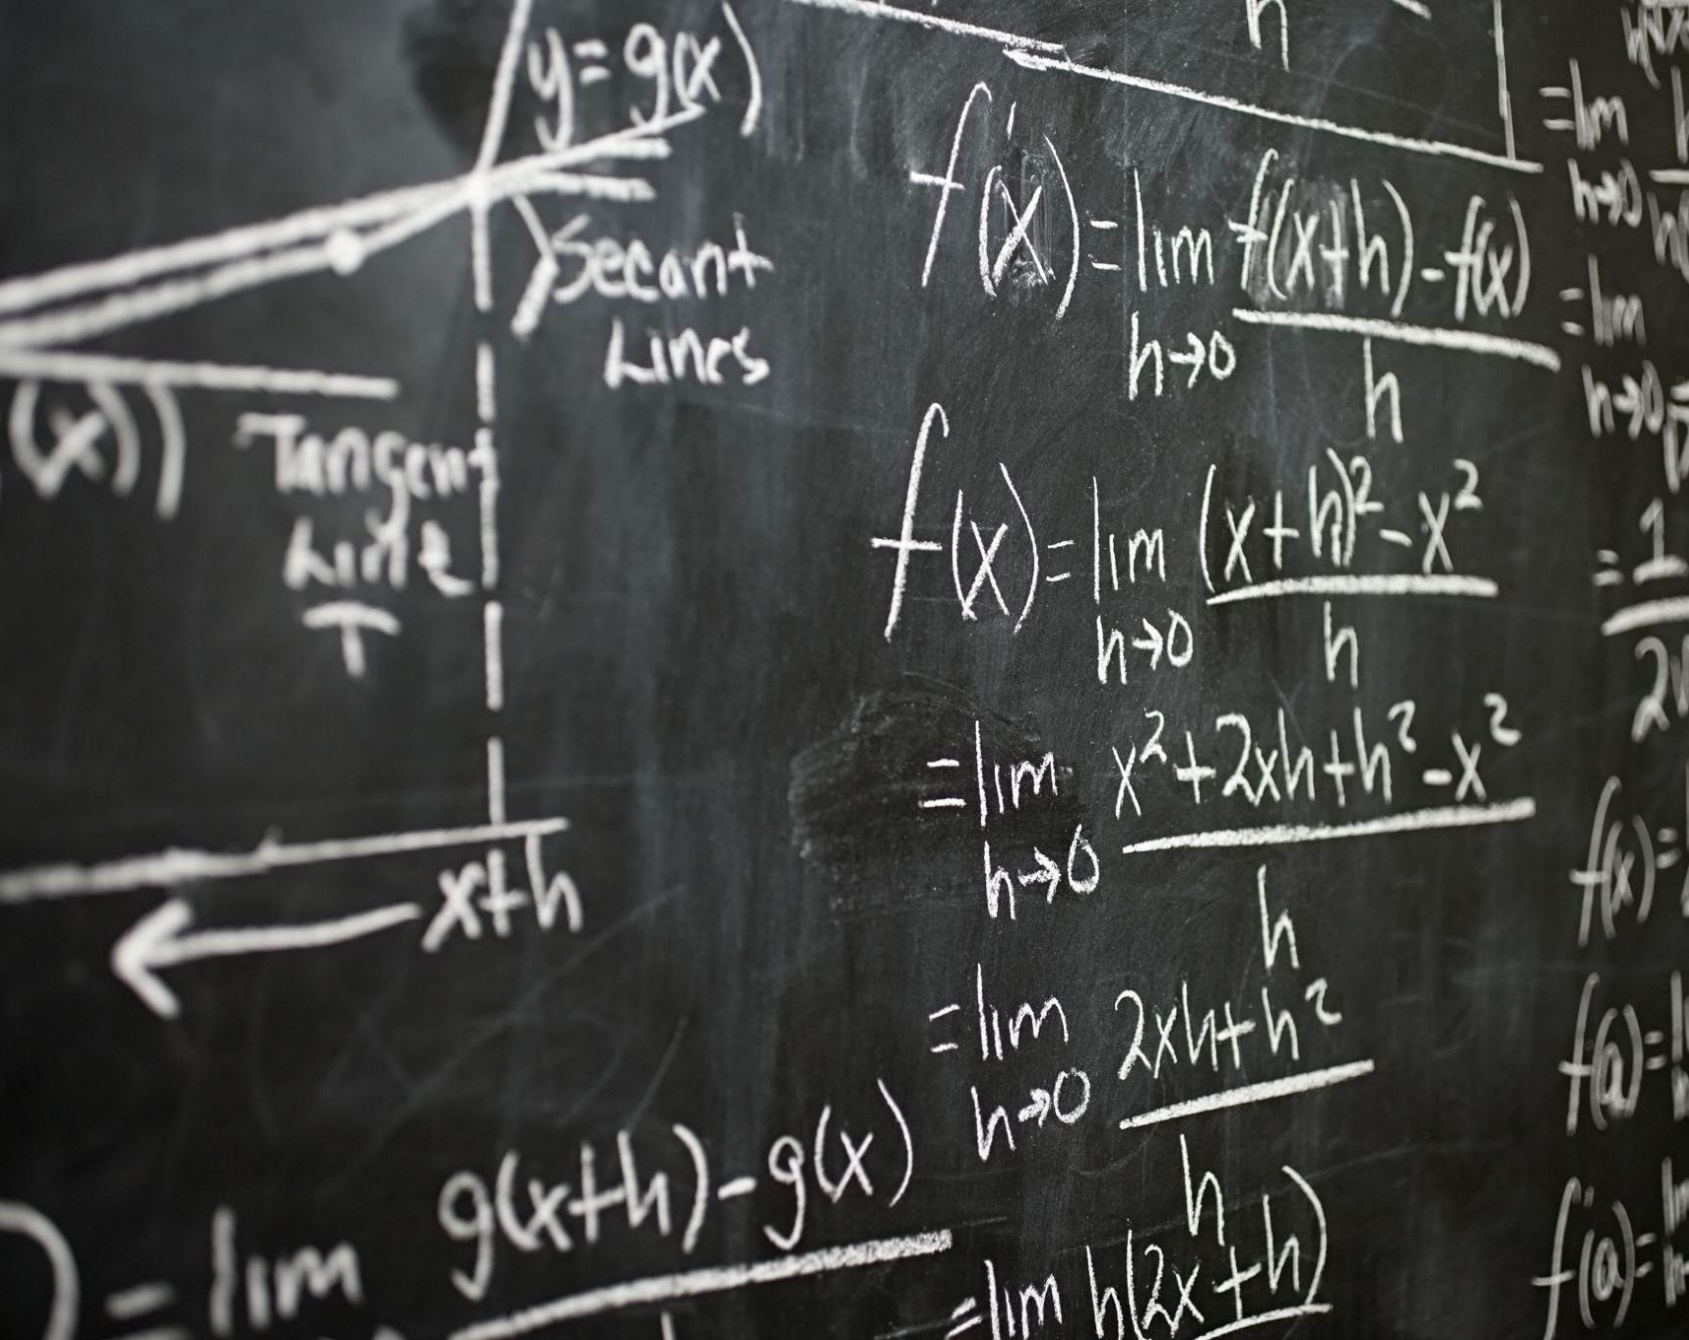 y=g(x)
Secant
Lines
(x))
Tangent
Line
T
x+h
) = lim g(x+h)-g(x)
h
f'(x) = lim f(x+h)-f(x)
h→0 h
f(x) = lim (x+h)²-x²
h→0 h
= lim x²+2xh+h²-x²
h→0 h
= lim 2xh+h²
h→0 h
= lim h(2x+h)
= lim
h→0
= lim
h→0
= 1
2
f(x) =
f(a) =
f'(a) =